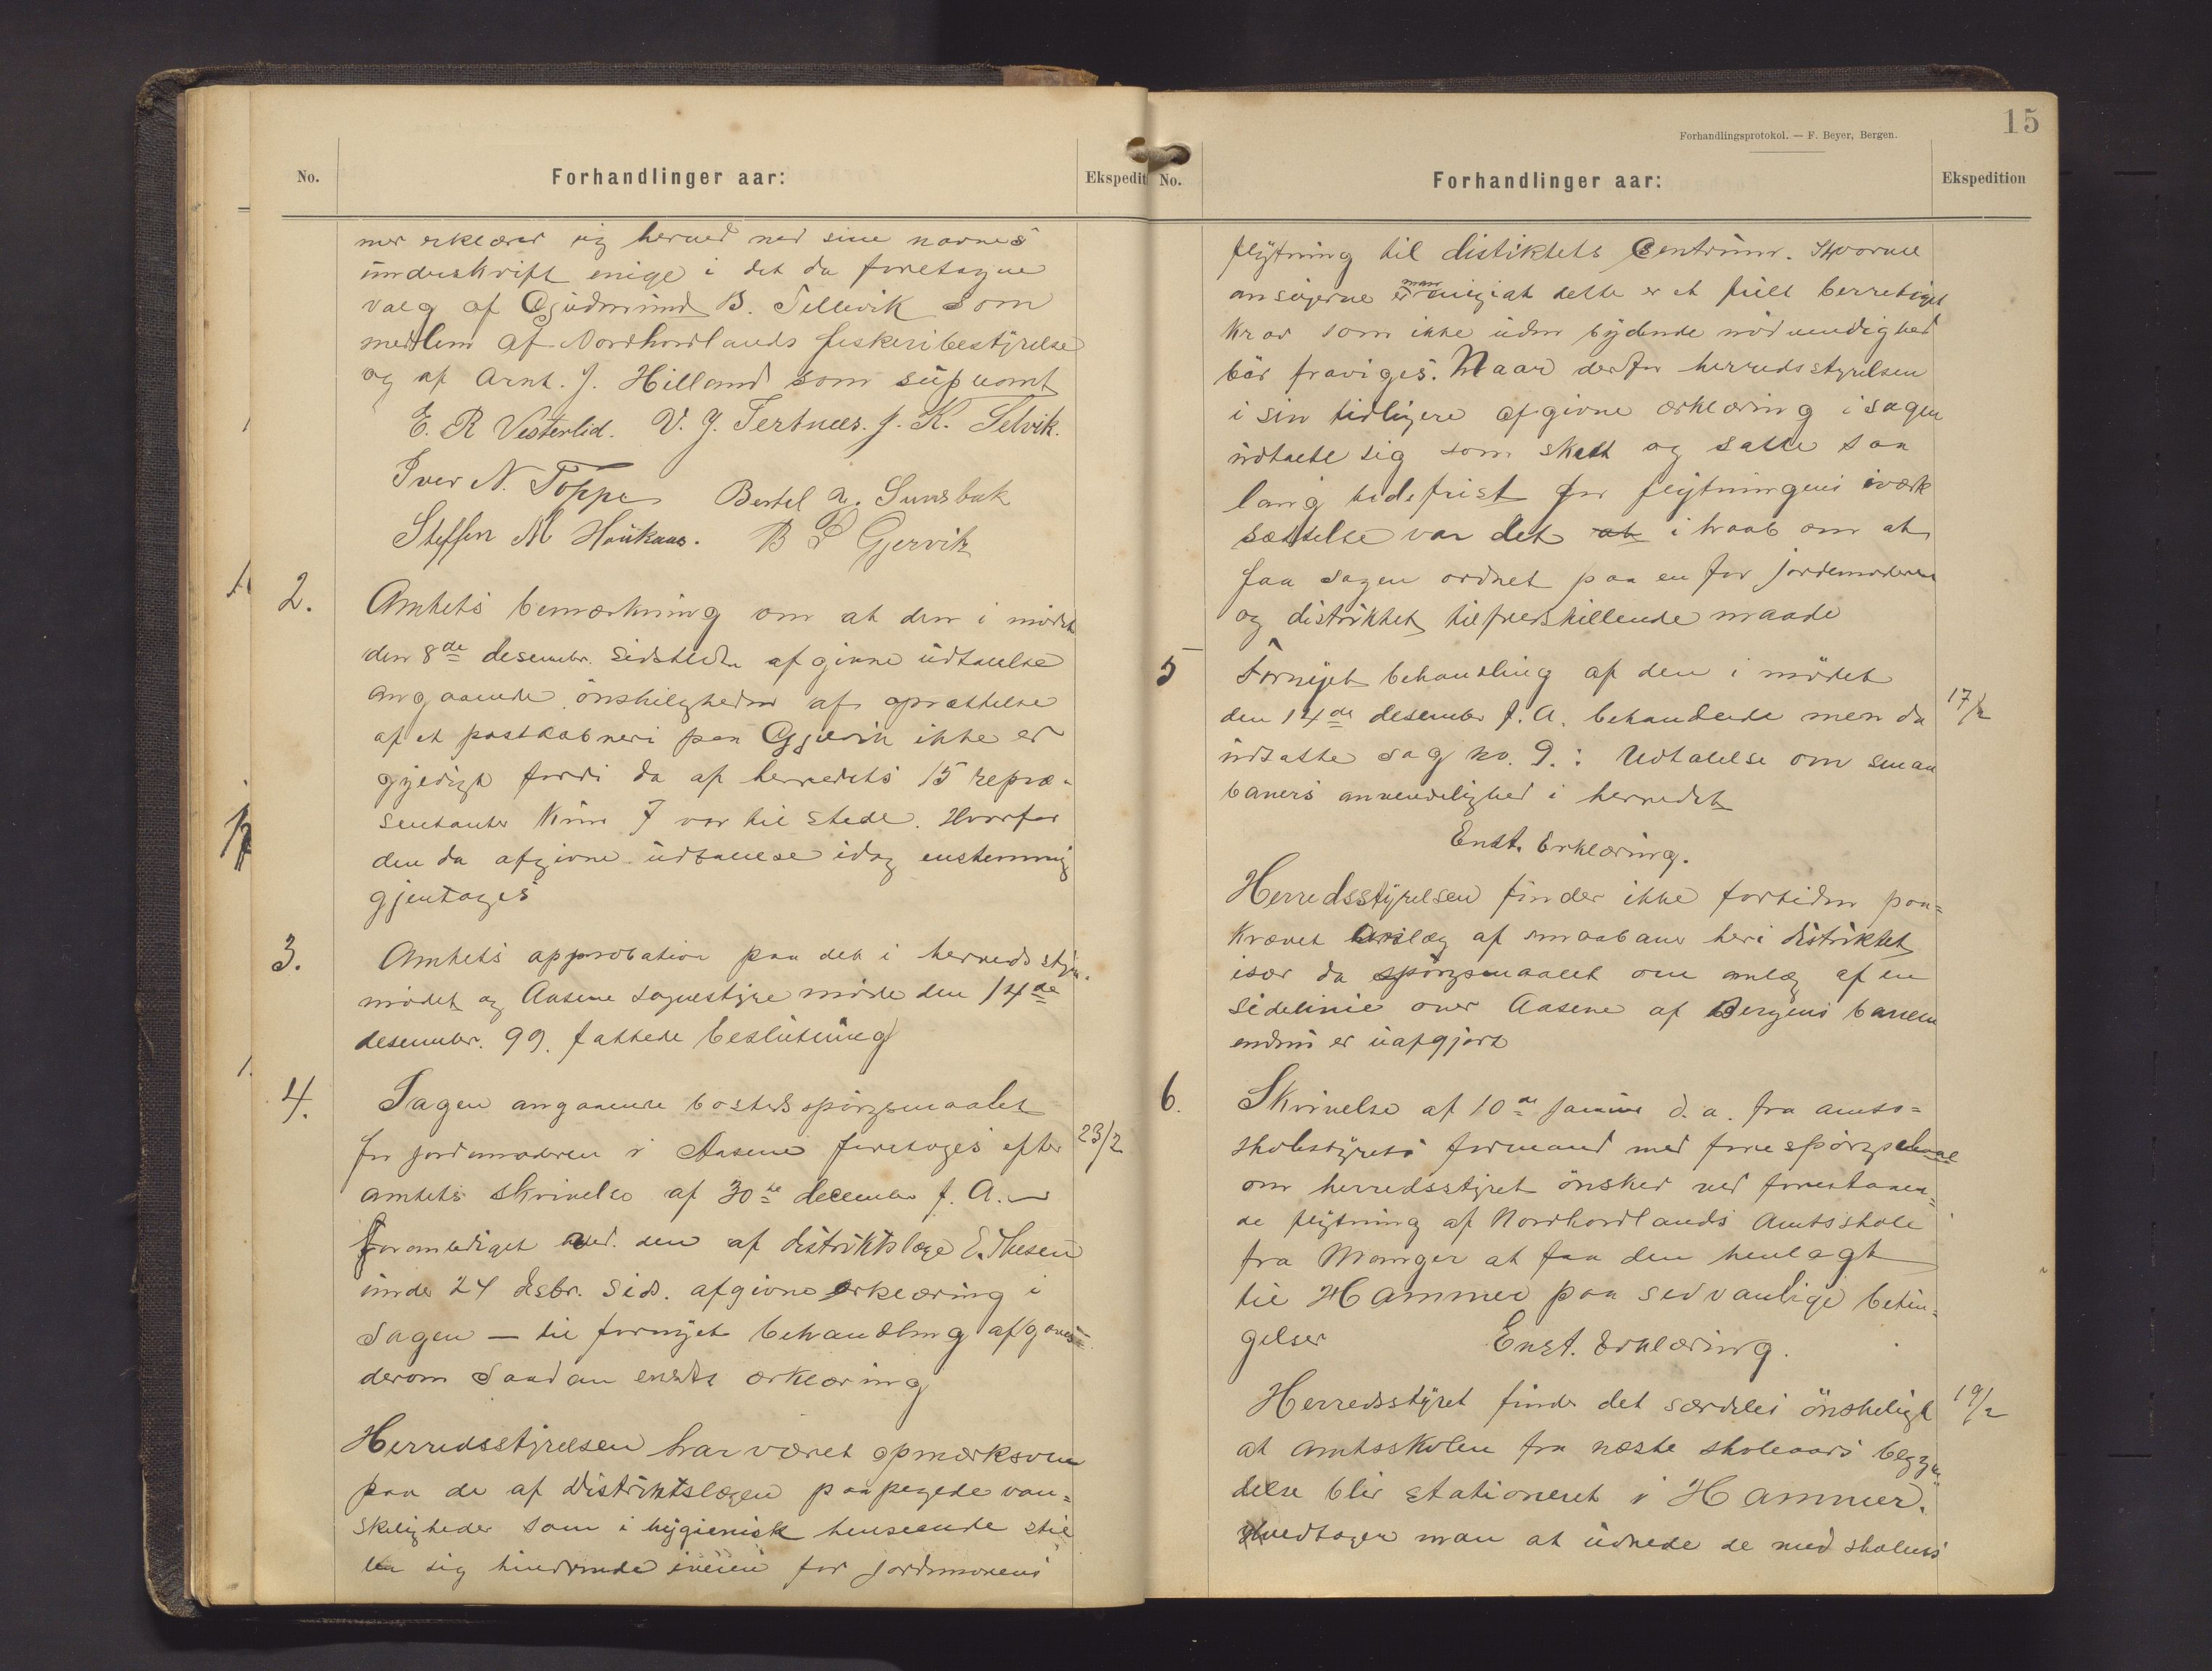 No.
Forhandlinger aar:
Ekspedit
mer erklærer sig herved med sine navnes
underskrift enige i det da foretagne
valg af Gjudmund B. Tellevik som
medlem af Nordhordlands fiskeribestyrelse
og af Arnt. J. Hilland som supvamt
E. R Vesterlid. V. J. Tertnæs. J. K. Selvik.
Iver N. Toppe Bertel A.
Steffen M Haukaas. B L Gjervik
2.
Amtets bemærkning om at den i mödet
den 8de desember. sidstleden afgivne udtalelse
angaaende önskeligheden af oprettelse
af et postaabneri paa Gjervik ikke er
gyldigt fordi da af herredets 15 repræ-
sentanter kun 7 var til stede. Hvorfor
den da afgivne udtalelse idag enstemmig
gjentages
3.
Amtets approbation paa det i herredsstyre-
mödet og Aasene sognestyremöde den 14de
desember. 99. fattede beslutning
4.
Sagen angaaende bostedsspörgsmaalet
for jordemoderen i Aasene foretoges efter
amtets skrivelse af 30te december f. A. –
foranlediget ved den af distriktslæge E. Thesen
under 24 desbr. sids. afgivne erklæring i
sagen – til fornyet behandling afgaves
derom saadan enst. erklæring
23/2
Herredsstyrelsen har været opmærksom
paa de af Distriktslægen paapegede van-
skeligheder som i hygienisk henseende stil
ler sig hindrende iveien for jordmorens
15
Forhandlingsprotokol. — F. Beyer, Bergen.
No.
Forhandlinger aar:
Ekspedition
flytning til distiktets Centrum. Hvorvel
ansøgerne er man enig i at dette er et fuldt berretiget
krav som ikke uden bydende nödvendighed
bör fraviges. Naar derfor herredsstyrelsen
i sin tidligere afgivne erklæring i sagen
udtalte sig som skett og satte saa
lang tidsfrist for flytningens iværk
sættelse var det at i haab om at
faa sagen ordnet paa en for jordemoderen
og distriktet tilfredstillende maade
5
Fornyet behandling af den i mödet
den 14de desember f. A. behandlede men da
udsatte sag no. 9.: Udtalelse om smaa
baners anvendelighed i herredet
17/2
Enst. Erklæring.
Herredsstyrelsen finder ikke fortiden paa-
krævet anlæg af smaabaner her i distriktet
især da spörgsmaalet om anlæg af en
sidelinie over Aasene af Bergens banen
endnu er uafgjort
6.
Skrivelse af 10de januar d. a. fra amts-
skolestyrets formand med forespörgsel
om herredsstyret önsker ved forestaaen-
de flytning af Nordhordlands Amtsskole
fra Manger at faa den henlagt
til Hammer paa sedvanlige betin-
gelser Enst. Erklæring.
Herredsstyret finder det særdeles önskeligt
at amtsskolen fra næste skoleaars begyn
delse blir stationeret i Hammer.
vedtager man at udrede de med skolens
19/2